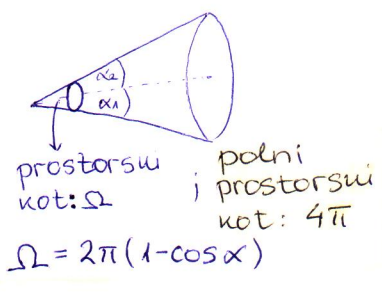 α2
α1
prostorski
kot: Ω
; polni
prostorski
kot: 4π
Ω = 2π(1-cosα)